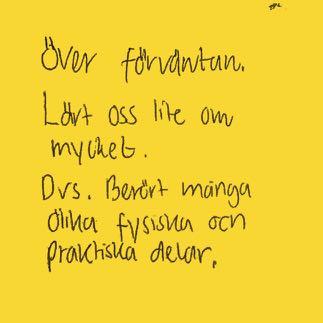 Över förväntan.
Lärt oss lite om
mycket.
Dvs. Berört många
olika fysiska och
praktiska delar.